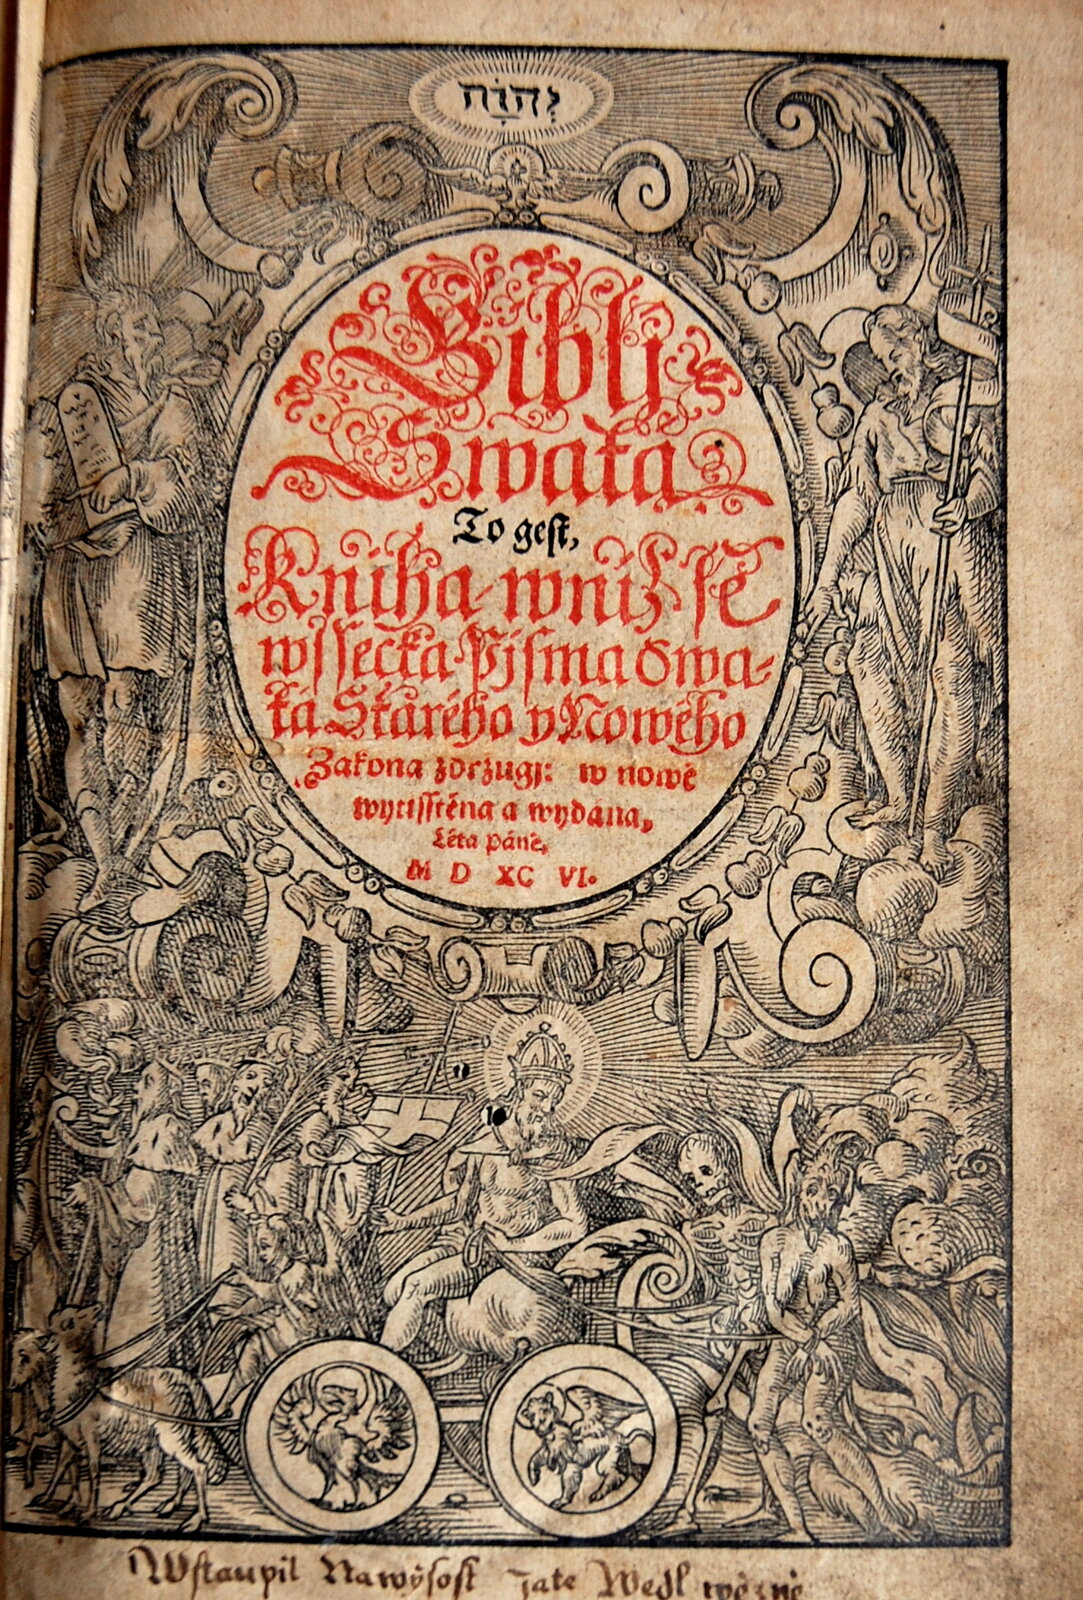 יְהוָֹה
Biblj
Swatá
To gest,
Kniha, wnjž se
wssecka Pjsma Swa-
tá Starého y Nowého
Zákona zdržugj: w nowě
wytisstěna a wydana,
Léta Páně,
M D XC VI.
Wstaupil Na wýsost Jate Wedl wězně